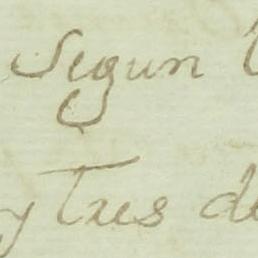 Segun
y Tres de